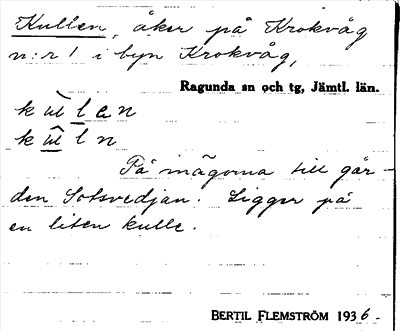 Kullen, åker på Krokvåg
n:r 1 i byn Krokvåg,
Ragunda sn och tg, Jämtl. län.
På inägorna till går-
den Sotsvedjan. Ligger på
en liten kulle.
BERTIL FLEMSTRÖM 1936-